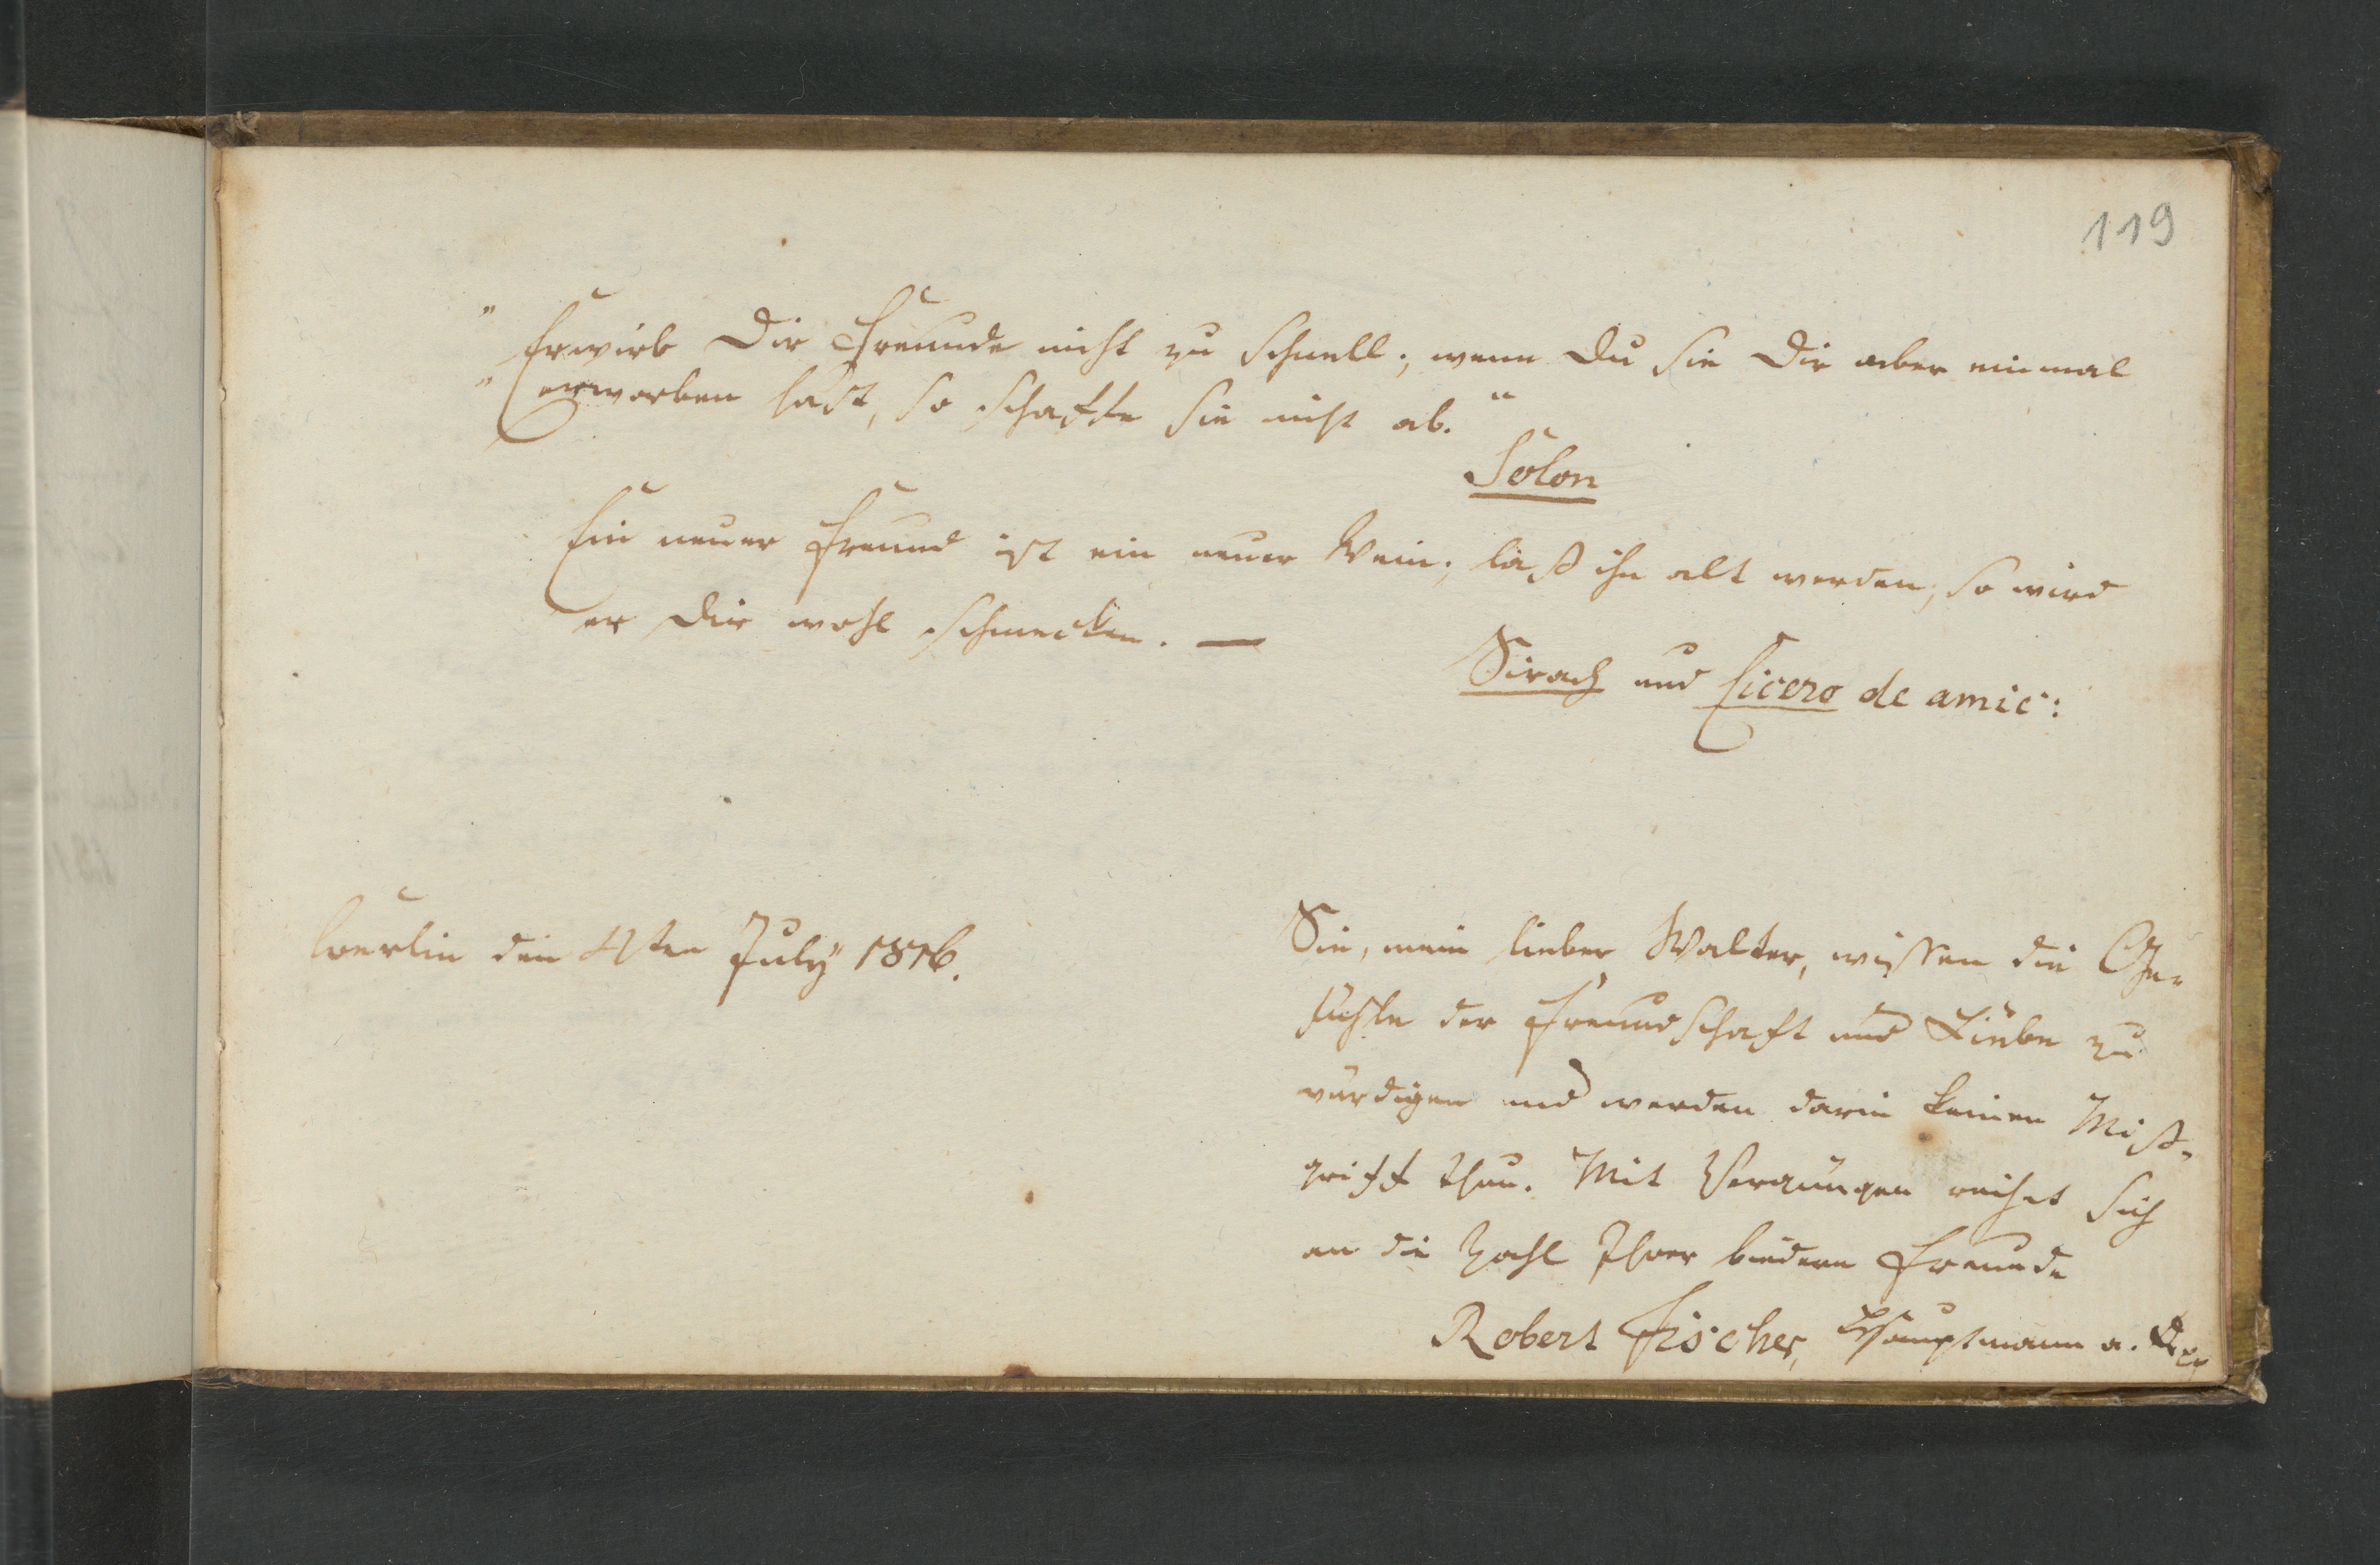 119
"Erwirb Dir Freunde nicht zu schnell; wenn Du sie Dir aber einmal
"erworben hast, so schaffe sie nicht ab."
Solon
Ein neuer Freund ist ein neuer Wein; laß ihn alt werden, so wird
er Dir wohl schmecken. —
Sirach und Cicero de amic:
Berlin den 4ten July 1816.
Sie, mein lieber Walter, wissen die Ge-
fühle der Freundschaft und Liebe zu
würdigen und werden darin keinen Miß-
griff thun. Mit Vergnügen reihet sich
an die Zahl Ihrer biedern Freunde
Robert Fischer, Hauptmann a.